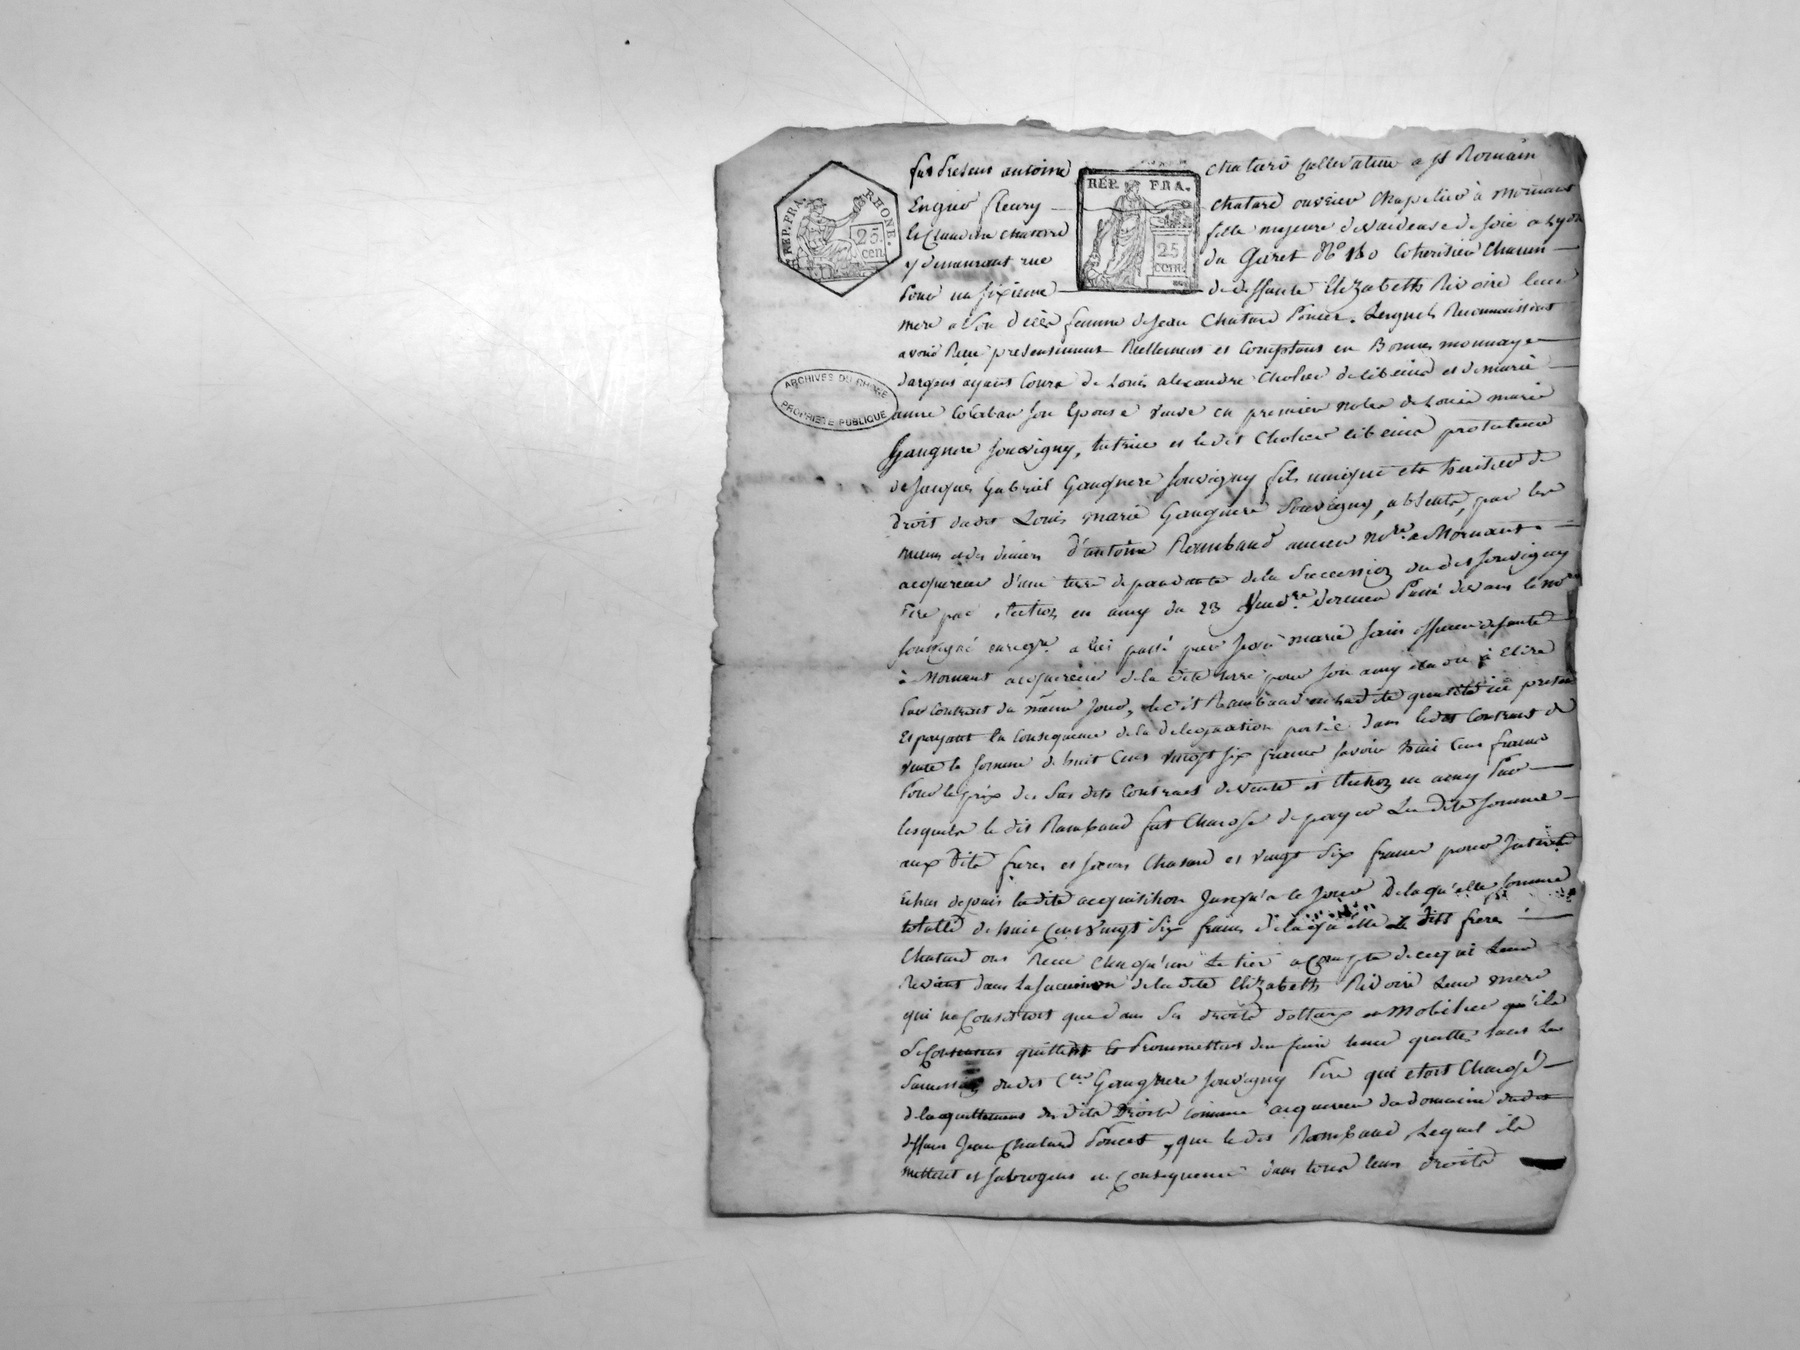 REP. FRA. RHONE. 25 cen
REP. FRA. 25 CENT.
ARCHIVES DU RHONE
PROPRIETE PUBLIQUE
fut Present antoine chatard Cultivateur a St Romain
En gier fleury chatard ouvrier Chapelier à Mornant
et Claudine chatard fille majeure devideuse de soie a Lyon
y demeurant rue du Garet No 180 Coheritier Chacun
Pour un sixieme de deffunte Elizabeth Rivoire leur
mere a Son décès femme de Jean Chatard Poncet. Lesquels Reconnoissent
avoir Recu presentement Reellement et Comptant en Bonnes monnoyes
dargent ayant Cours de Louis alexandre Cholier de Cibeins et de marie
anne son Epouse veuve en premier nobles de Louis marie
Gangnere Jouvigny, tutrice et le dit Cholier Cibeins protuteur
de Jacques Gabriel Gangnere Souvigny fils unique et heritier de
droit dudit Louis marie Gangnere Souvigny, absents, par les
mains et des deniers d'antoine Rambaud ancien nore a Mornant
acquereur d'une terre dependante de la Succession du dit Souvigny
Pere par election en amy du 23 dernier Passé devant le nore
soussigné enregré a lui passé par Jean marie officier de santé
à Mornant acquereur de la dite terre pour son amy élu ou à Elire
Par Contrat du même Jour, le dit Rambaud present
Et payant En Consequence de la delegation portée dans ledit Contrat de
vente la somme de huit Cent vingt six francs savoir huit Cent francs
Pour le prix des Sus dits Contrat de vente et Election en amy Par
lesquels le dit Rambaud fut Chargé de payer La dite somme
aux dits freres et soeurs Chatard et vingt Six francs pour Interets
Echus depuis ladite acquisition Jusqu'a ce Jour De laqu'elle somme
totalle de huit Cent vingt Six francs de laqu'elle Les dits freres
Chatard ont Recu Chaqu'un Le tier a Compte de ce qui Leur
Revient dans La succession de la dite Elizabeth Rivoire Leur mere
qui ne Consistoit que dans Ses droits dottaux et Mobilier qu'ils
quittent et Promettent den faire tenir quittes tant La
Succession du dit Cen Gangnere Jouvigny Pere qui etoit Chargé
de lacquittement des dits Droits Comme acquereur du domaine dudit
deffunt Jean Chatard Poncet, que le dit Rambaud Lequel ils
mettent et subrogent en Consequence dans tous leurs droits